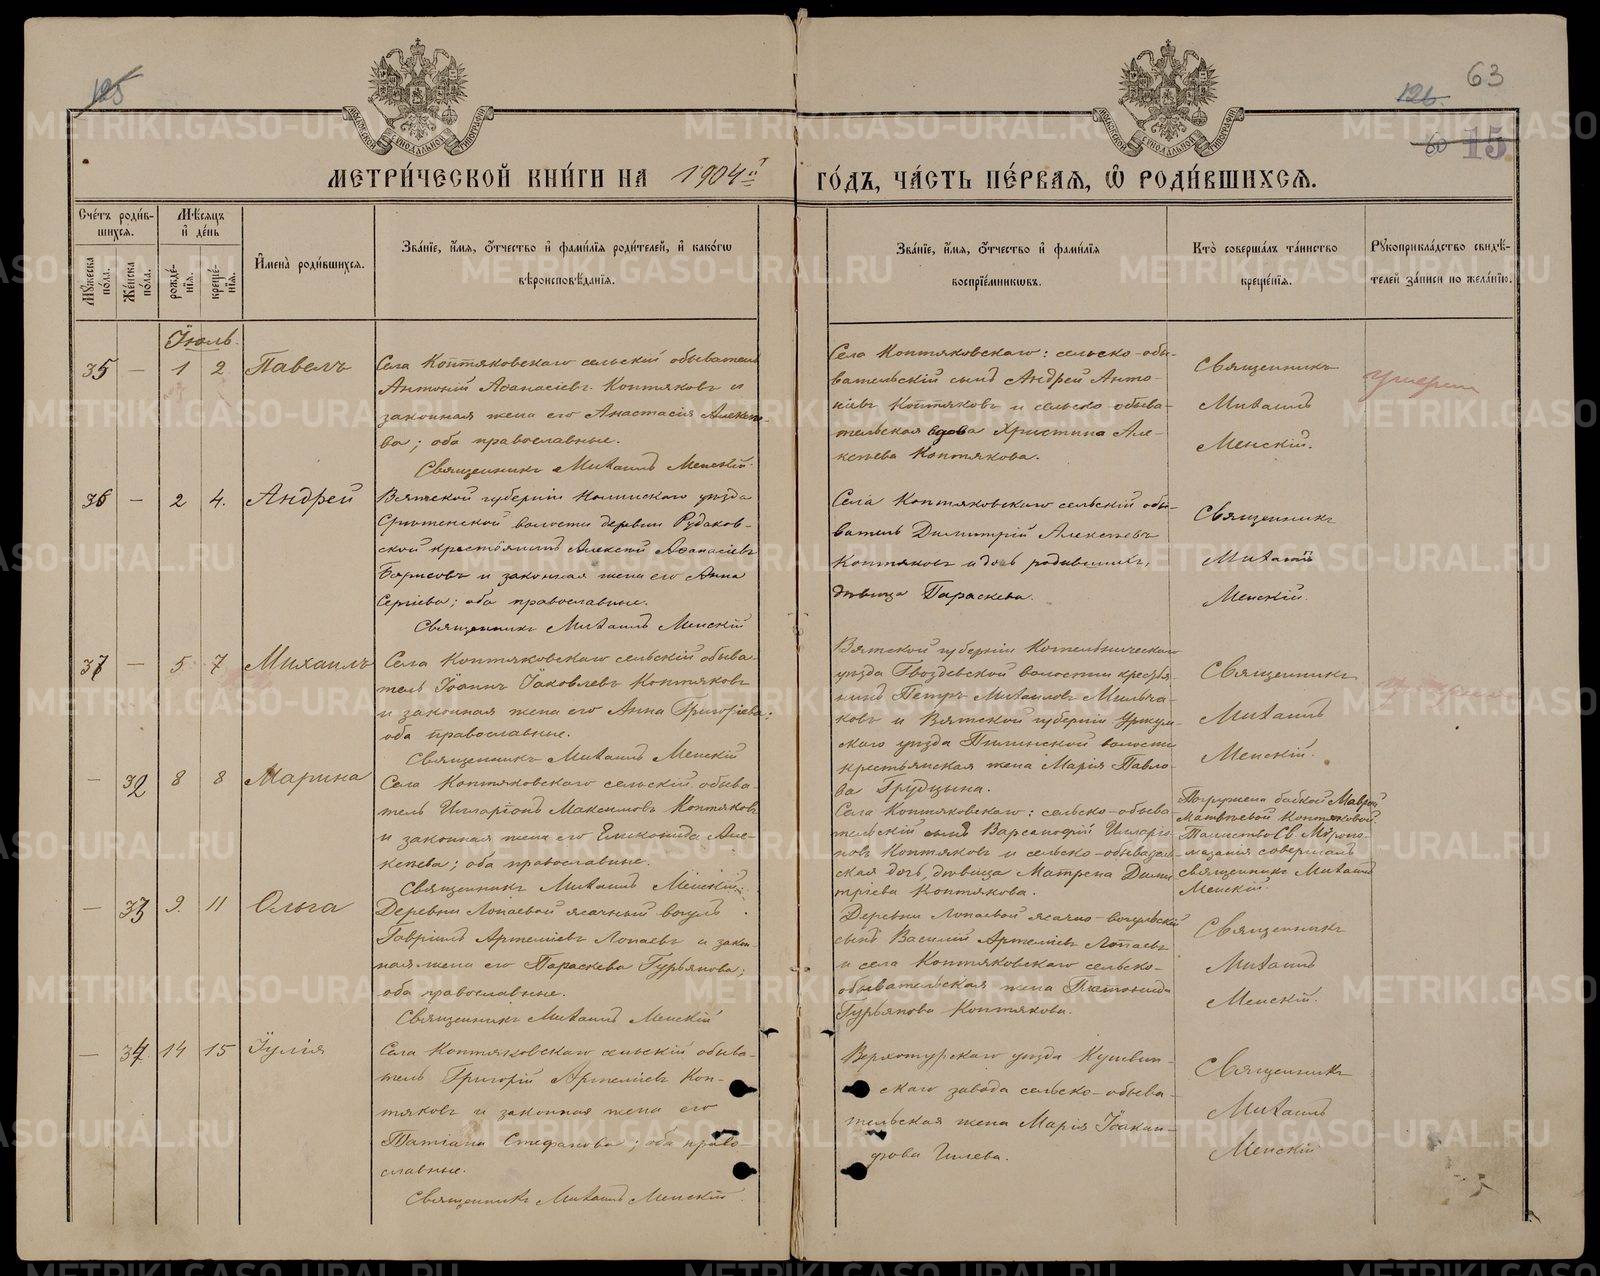 125
126.
63
60 15
МЕТРИ́ЧЕСКОЙ КНИ́ГИ НА 1904й ГО́ДЪ, ЧА́СТЬ ПЕ́РВАѦ, Ѡ҆ РОДИ́ВШИХСѦ.
Сче́тъ роди́в-
шихсѧ.
Мꙋ́жеска по́ла.
Же́нска по́ла.
Мѣ́сѧцъ и҆ де́нь
рожде́-
нїѧ.
креще́-
нїѧ.
И҆мена̀ роди́вшихсѧ.
Зва́нїе, и҆́мѧ, ѻ҆́тчество и҆ фами́лїѧ роди́телей, и҆ како́гѡ
вѣроисповѣ́данїѧ.
Зва́нїе, и҆́мѧ, ѻ҆́тчество и҆ фами́лїѧ
воспрїе́мникѡвъ.
Кто̀ соверша́лъ та́инство
креще́нїѧ.
Рꙋкоприкла́дство свидѣ́-
телей за́писи по жела́нїю.
Іюль.
35 — 1 2 Павелъ
Села Коптяковскаго сельскій обыватель
Антоній Аѳанасіевъ Коптяковъ и
законная жена его Анастасія Алексѣе-
ва; оба православные.
Священникъ Михаилъ Менскій.
Села Коптяковскаго: сельско-обы-
вательскій сынъ Андрей Анто-
ніевъ Коптяковъ и сельско-обыва-
тельская вдова Христина Але-
ксѣева Коптякова.
Священникъ
Михаилъ
Менскій.
умеръ
36 — 2 4. Андрей
Вятской губерніи Нолинскаго уѣзда
Срѣтенской волости деревни Рудаков-
ской крестьянинъ Алексѣй Аѳанасіевъ
Борисовъ и законная жена его Анна
Сергіева; оба православные.
Священникъ Михаилъ Менскій
Села Коптяковскаго сельскій обы-
ватель Димитрій Алексѣевъ
Коптяковъ и дочь родившихъ,
дѣвица Параскева.
Священникъ
Михаилъ
Менскій.
37 — 5 7 Михаилъ
Села Коптяковскаго сельскій обыва-
тель Іоаннъ Іаковлевъ Коптяковъ
и законная жена его Анна Григоріева;
оба православные.
Священникъ Михаилъ Менскій
Вятской губерніи Котельническаго
уѣзда Гвоздевской волости крестья-
нинъ Петръ Михаиловъ Мильча-
ковъ и Вятской губерніи Уржум-
скаго уѣзда волости
крестьянская жена Марія Павло-
ва Грудцына.
Священникъ
Михаилъ
Менскій.
— 32 8 8 Марина
Села Коптяковскаго сельскій обыва-
тель Илларіонъ Максимовъ Коптяковъ
и законная жена его Але-
ксѣева; оба православные.
Священникъ Михаилъ Менскій
Села Коптяковскаго: сельско-обыва-
тельскій сынъ Варсанофій Илларіо-
новъ Коптяковъ и сельско-обыватель-
ская дочь, дѣвица Матрена Дими-
тріева Коптякова.
Погружена бабкой Маврой
Матвѣевой Коптяковой.
Таинство Св. Мѵропо-
мазанія совершалъ
священникъ Михаилъ
Менскій.
— 33 9. 11 Ольга
Деревни Лопаевой ясачный вогулъ
Гавріилъ Артеміевъ Лопаевъ и закон-
ная жена его Параскева Гурьянова;
оба православные.
Священникъ Михаилъ Менскій
Деревни Лопаевой ясачно-вогульскій
сынъ Василій Артеміевъ Лопаевъ
и села Коптяковскаго сельско-
обывательская жена Платонида
Гурьянова Коптякова.
Священникъ
Михаилъ
Менскій.
— 34 14 15 Іулія
Села Коптяковскаго сельскій обыва-
тель Григорій Артеміевъ Коп-
тяковъ и законная жена его
Татіана Стефанова; оба право-
славные.
Священникъ Михаилъ Менскій.
Верхотурскаго уѣзда Кушвин-
скаго завода сельско-обыва-
тельская жена Марія Іоакин-
фова Гилева.
Священникъ
Михаилъ
Менскій
METRIKI.GASO-URAL.RU